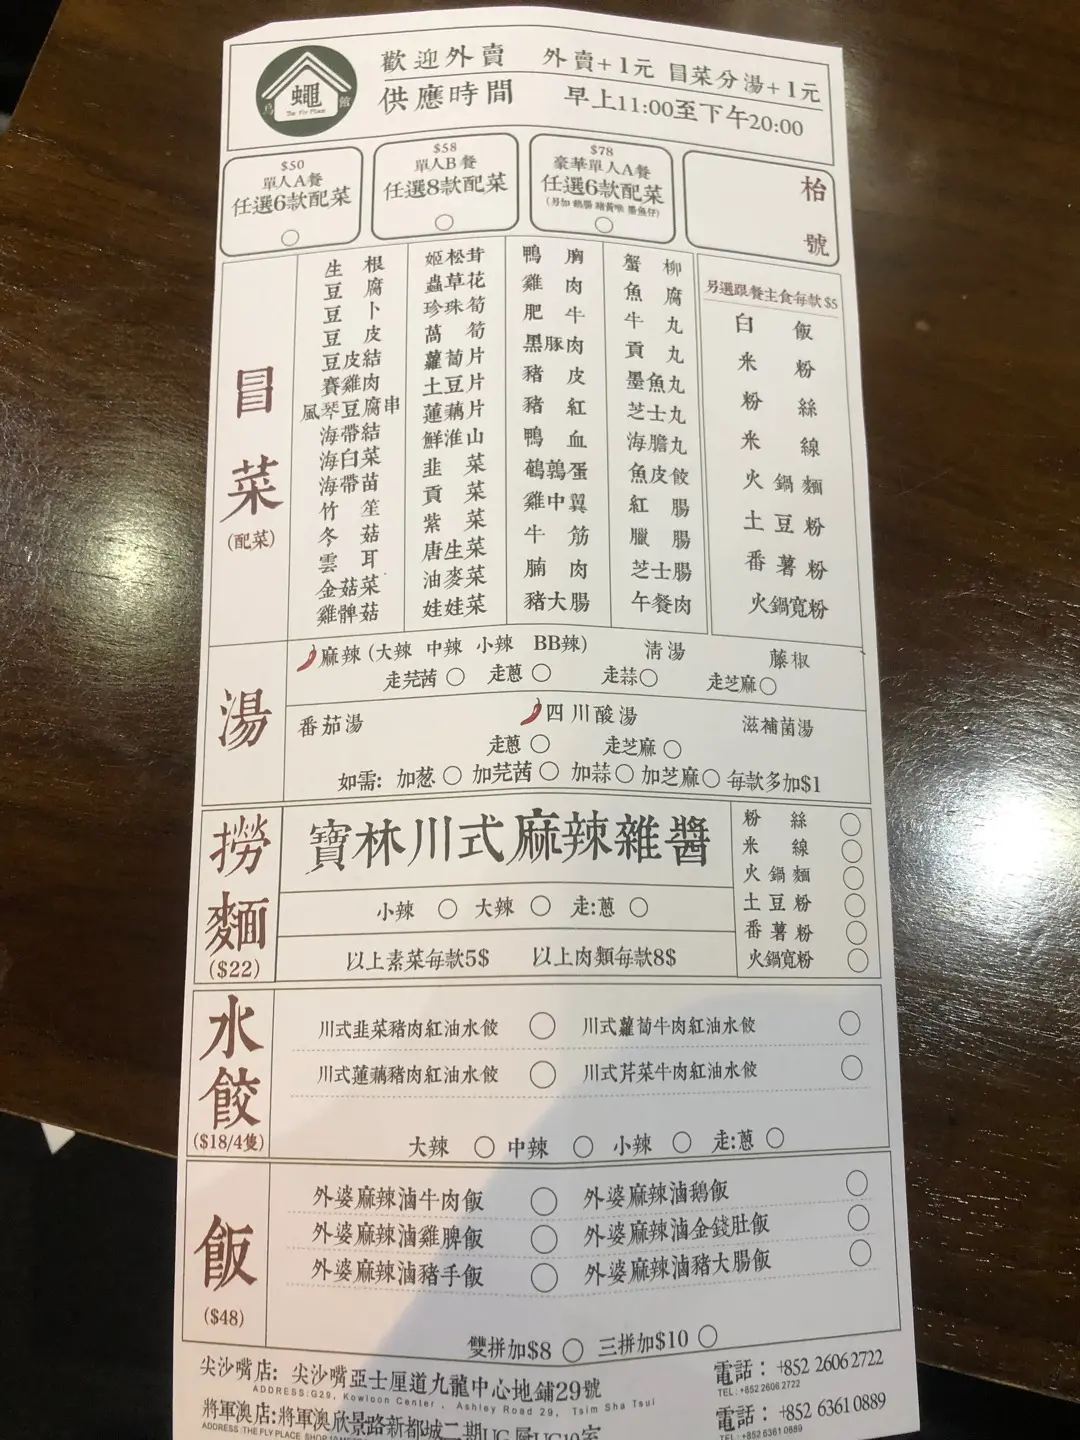 蠅
The Fly Place
館
歡迎外賣 外賣+1元 冒菜分湯+1元
供應時間 早上11:00至下午20:00
$50
單人A餐
任選6款配菜
$58
單人B餐
任選8款配菜
$78
豪華單人A餐
任選6款配菜
(另加 鵝腸 豬黃喉 墨魚仔)
枱
號
冒菜
(配菜)
生根
豆腐
豆卜
豆皮
豆皮結
賽雞肉
風琴豆腐串
海帶結
海白菜
海帶苗
竹笙
冬菇
雲耳
金菇菜
雞髀菇
姬松茸
蟲草花
珍珠筍
萵筍
蘿蔔片
土豆片
蓮藕片
鮮淮山
韭菜
貢菜
紫菜
唐生菜
油麥菜
娃娃菜
鴨胸
雞肉
肥牛
黑豚肉
豬皮
豬紅
鴨血
鵪鶉蛋
雞中翼
牛筋
腩肉
豬大腸
蟹柳
魚腐
牛丸
貢丸
墨魚丸
芝士丸
海膽丸
魚皮餃
紅腸
臘腸
芝士腸
午餐肉
另選跟餐主食每款$5
白飯
米粉
粉絲
米線
火鍋麵
土豆粉
番薯粉
火鍋寬粉
湯
麻辣 (大辣 中辣 小辣 BB辣) 清湯 藤椒
走芫茜 走蔥 走蒜 走芝麻
番茄湯 四川酸湯 滋補菌湯
走蔥 走芝麻
如需: 加葱 加芫茜 加蒜 加芝麻 每款多加$1
撈麵
($22)
寶林川式麻辣雜醬
小辣 大辣 走:蔥
以上素菜每款5$ 以上肉類每款8$
粉絲
米線
火鍋麵
土豆粉
番薯粉
火鍋寬粉
水餃
($18/4隻)
川式韭菜豬肉紅油水餃 川式蘿蔔牛肉紅油水餃
川式蓮藕豬肉紅油水餃 川式芹菜牛肉紅油水餃
大辣 中辣 小辣 走:蔥
飯
($48)
外婆麻辣滷牛肉飯 外婆麻辣滷鵝飯
外婆麻辣滷雞脾飯 外婆麻辣滷金錢肚飯
外婆麻辣滷豬手飯 外婆麻辣滷豬大腸飯
雙拼加$8 三拼加$10
尖沙嘴店: 尖沙嘴亞士厘道九龍中心地鋪29號
ADDRESS:G29, Kowloon Center, Ashley Road 29, Tsim Sha Tsui
電話: +852 2606 2722
TEL: +852 2606 2722
將軍澳店:將軍澳欣景路新都城二期UG層UG10室
ADDRESS :THE FLY PLACE SHOP
電話: +852 6361 0889
TEL: +852 6361 0889